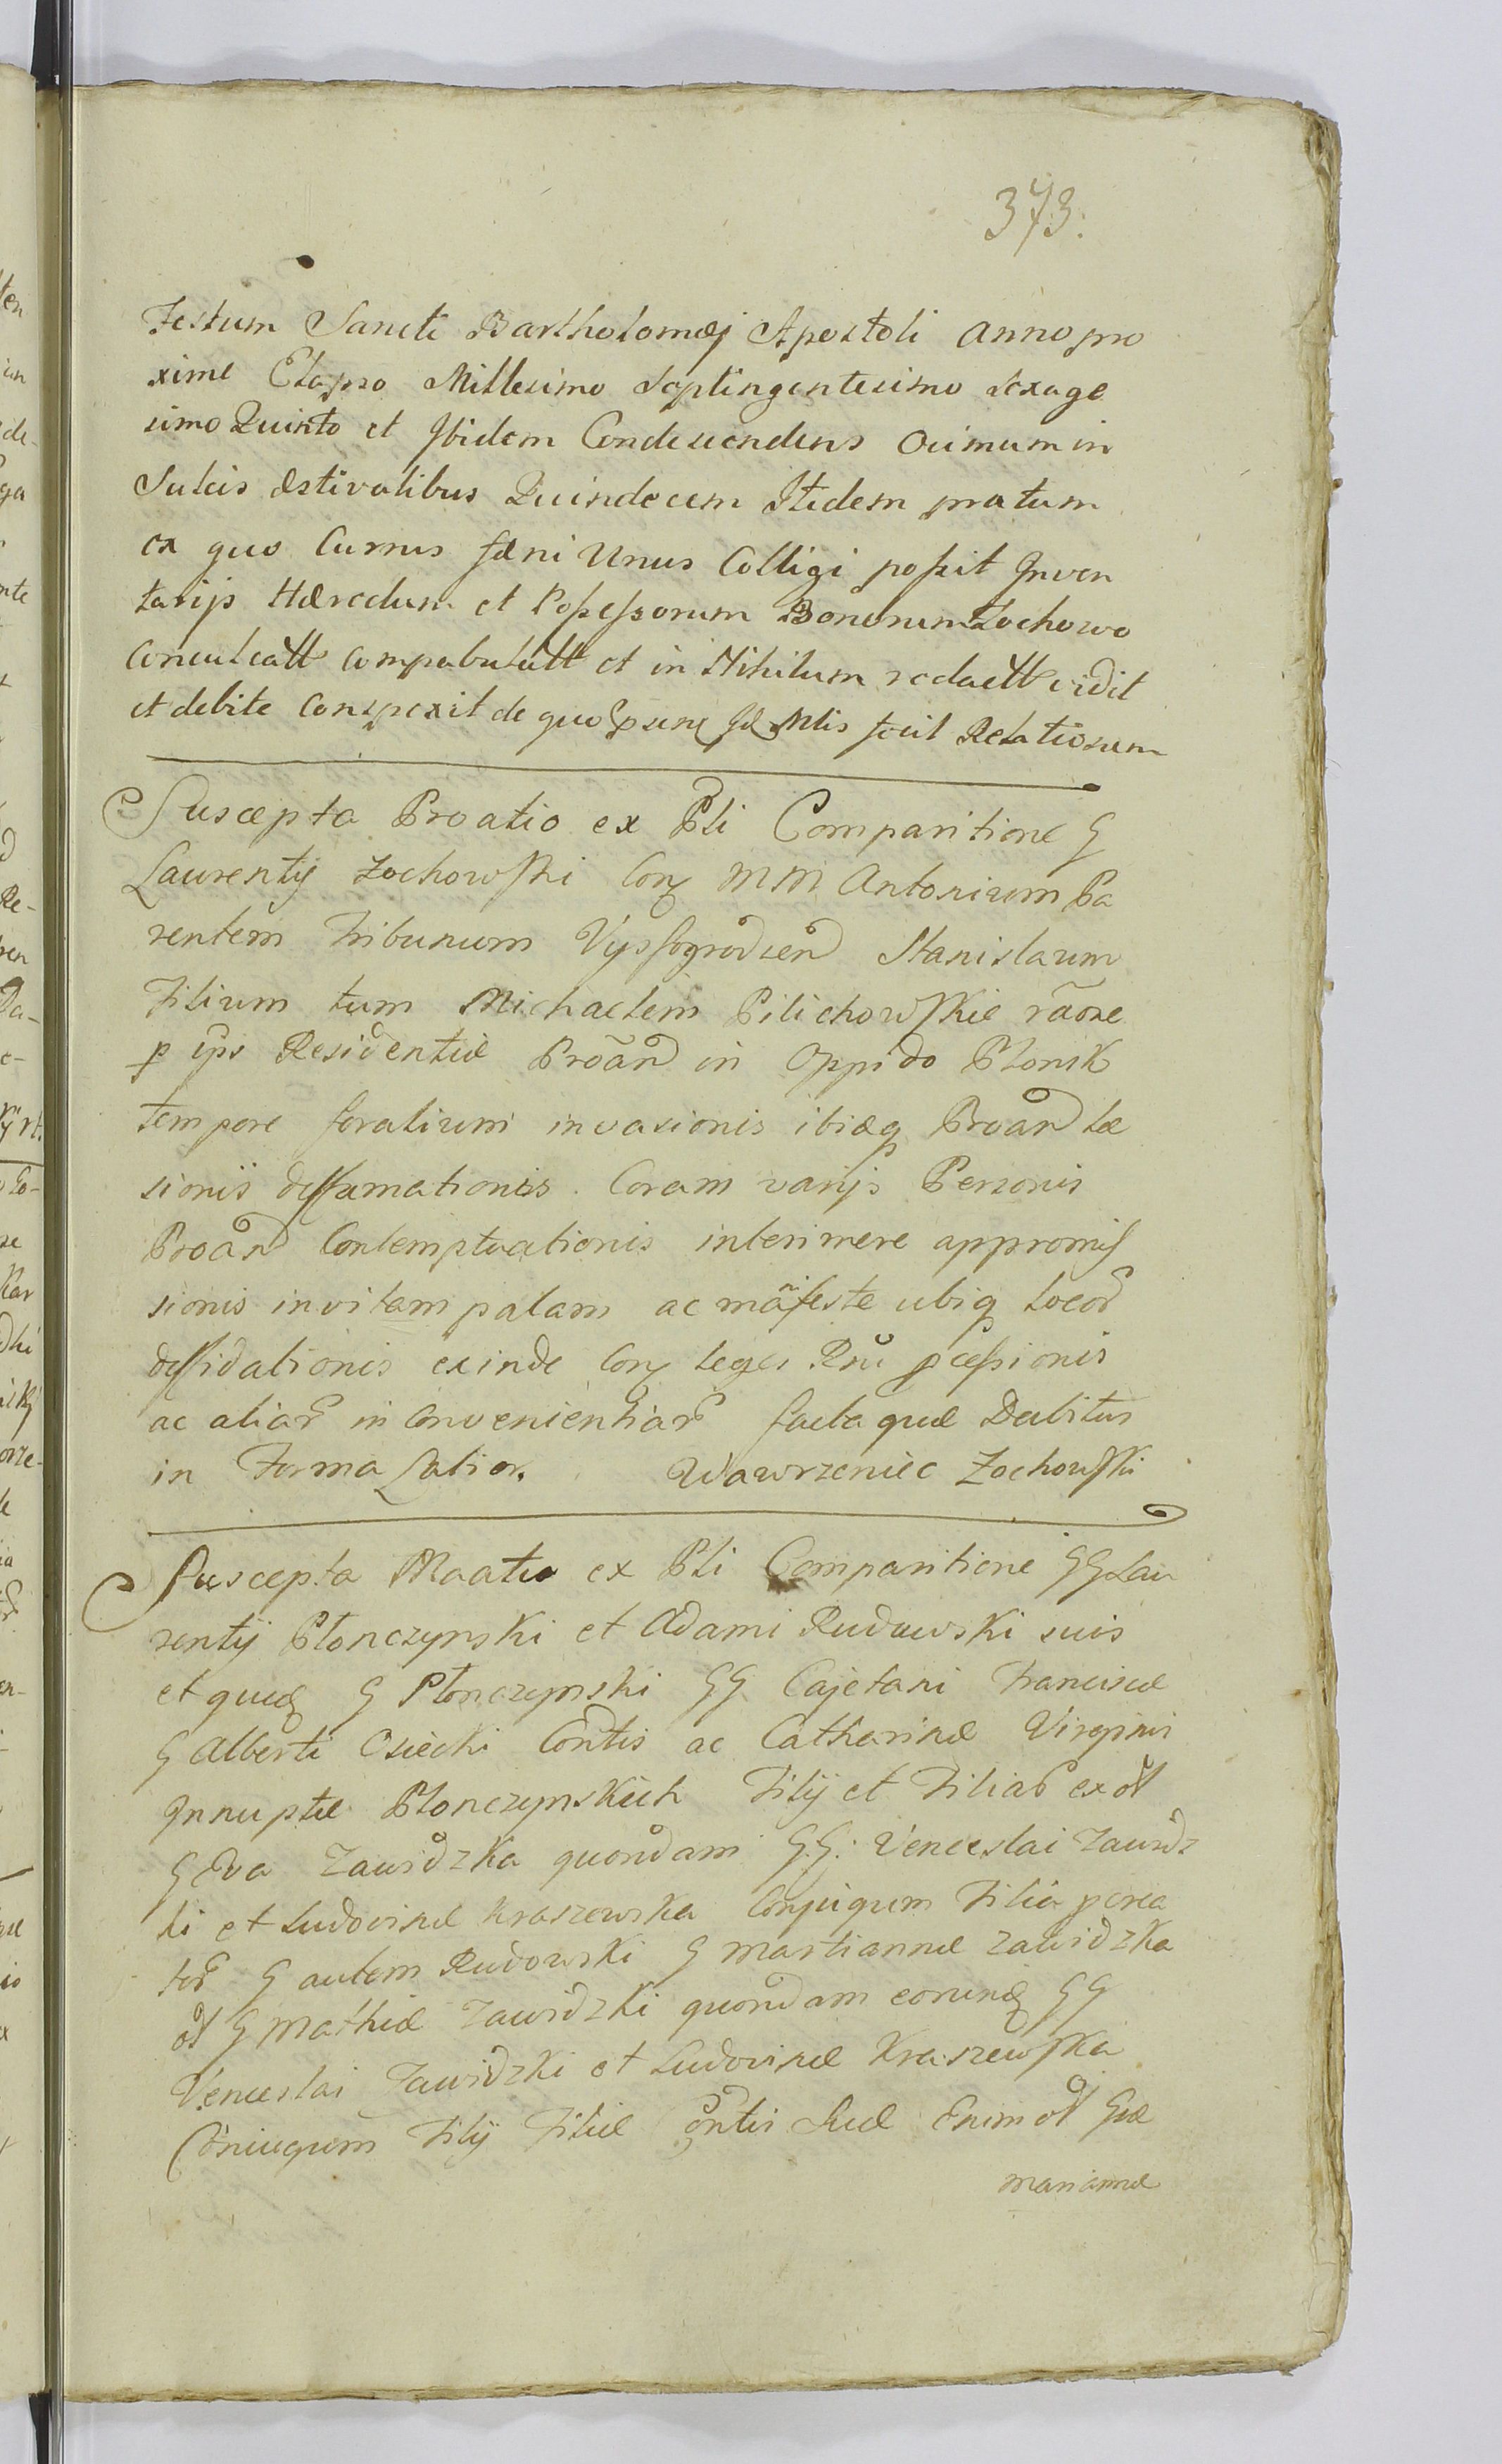 373.
Festum Sancti Bartholomæj Apostoli Anno pro
xime Elapso Millesimo Septingentesimo sexage
simo Quinto et Ibidem Condescendens Ocimum in
Sulcis Æstivalibus Quindecem Itidem pratum
ex quo Currus fæni Unus Colligi possit Inven
tarijs Hæredum et Possessorum Bonorum Zochowo
Conculcatt compabulatt et in Nihilum redactt vidit
et debite Conspexit de quo fecit Relationem
Suscepta Proatio ex Pli Comparitione G
Laurentij Zochowski Con MM Antonium Pa
rentem Tribunum Vyssogrodzen Stanislaum
Filium tum Michaelem Pilichowskie raõne
p ips Residentiæ Proãn in Oppido Plonsk
tempore foralium invasionis ibidq Proan læ
sionis deffamationis. Coram varijs Personis
Proan Contemptuationis interimere appromis
sionis in vitam palam ac mãifeste ubiq locor
deffidationis exinde Con leges Rni pcessionis
ac aliar in Convenientiar factaque Dabitur
in Forma Latior. Wawrzeniec Zochowski
Suscepta Maatio ex Pli Comparitione GG Lau
rentij Plonczynski et Adami Rudowski suis
et quid G Plonczynski GG Cajetani Franciscæ
G Alberti Osiecki Contis ac Catharinæ Virginis
Innuptæ Plonczynskich Filij et Filiar ex ol
G Eva Zawidzka quondam GG. Venceslai Zawidz
ki et Ludovicæ Kraszewska Conjugum Filia pcrea
tor G autem Rudowski G Martiannæ Zawidzka
ol G Mathiæ Zawidzki quondam eorund GG
Venceslai Zawidzki et Ludovicæ Kraszewska
Coniugum Filij Filiæ Contis Suæ Enim ol Gæ
Mariannæ